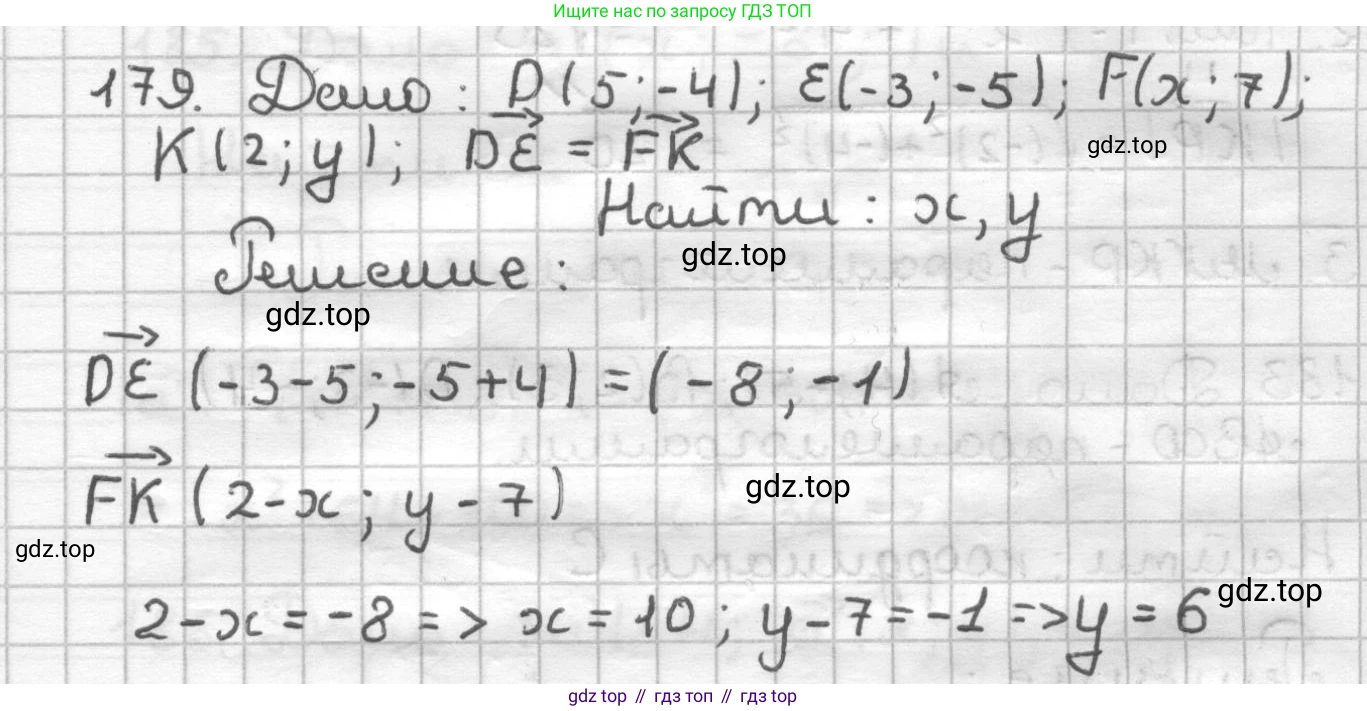 Ищите нас по запросу ГДЗ ТОП
179. Дано: D(5;-4); E(-3;-5); F(x;7);
gdz.top
K(2;y); DE = FK
Найти: x, y
gdz.top
Решение:
gdz.top
DE (-3-5;-5+4) = (-8;-1)
FK (2-x; y-7)
gdz.top
gdz.top
2-x = -8 => x = 10; y-7 = -1 => y = 6
gdz.top
gdz top // гдз топ // gdz top